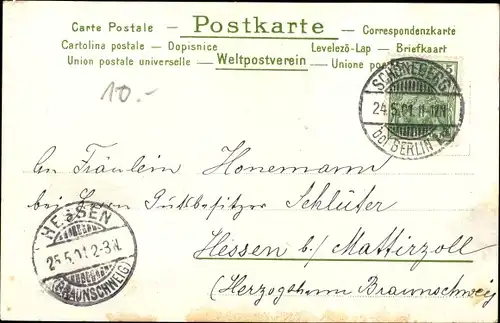 Carte Postale - Postkarte - Correspondenzkarte
Cartolina postale - Dopisnice Levelezö-Lap - Briefkaart
Union postale universelle - Weltpostverein - Unione
10.-
SCHÖNEBERG
24.5.01.11-12V.
bei BERLIN
5
An Fräulein Honemann
bei Herrn Gutsbesitzer Schlüter
Hessen b/ Mattirzoll
(Herzogthum Braunschweig
HESSEN
25.5.01.2-3N.
(BRAUNSCHWEIG)